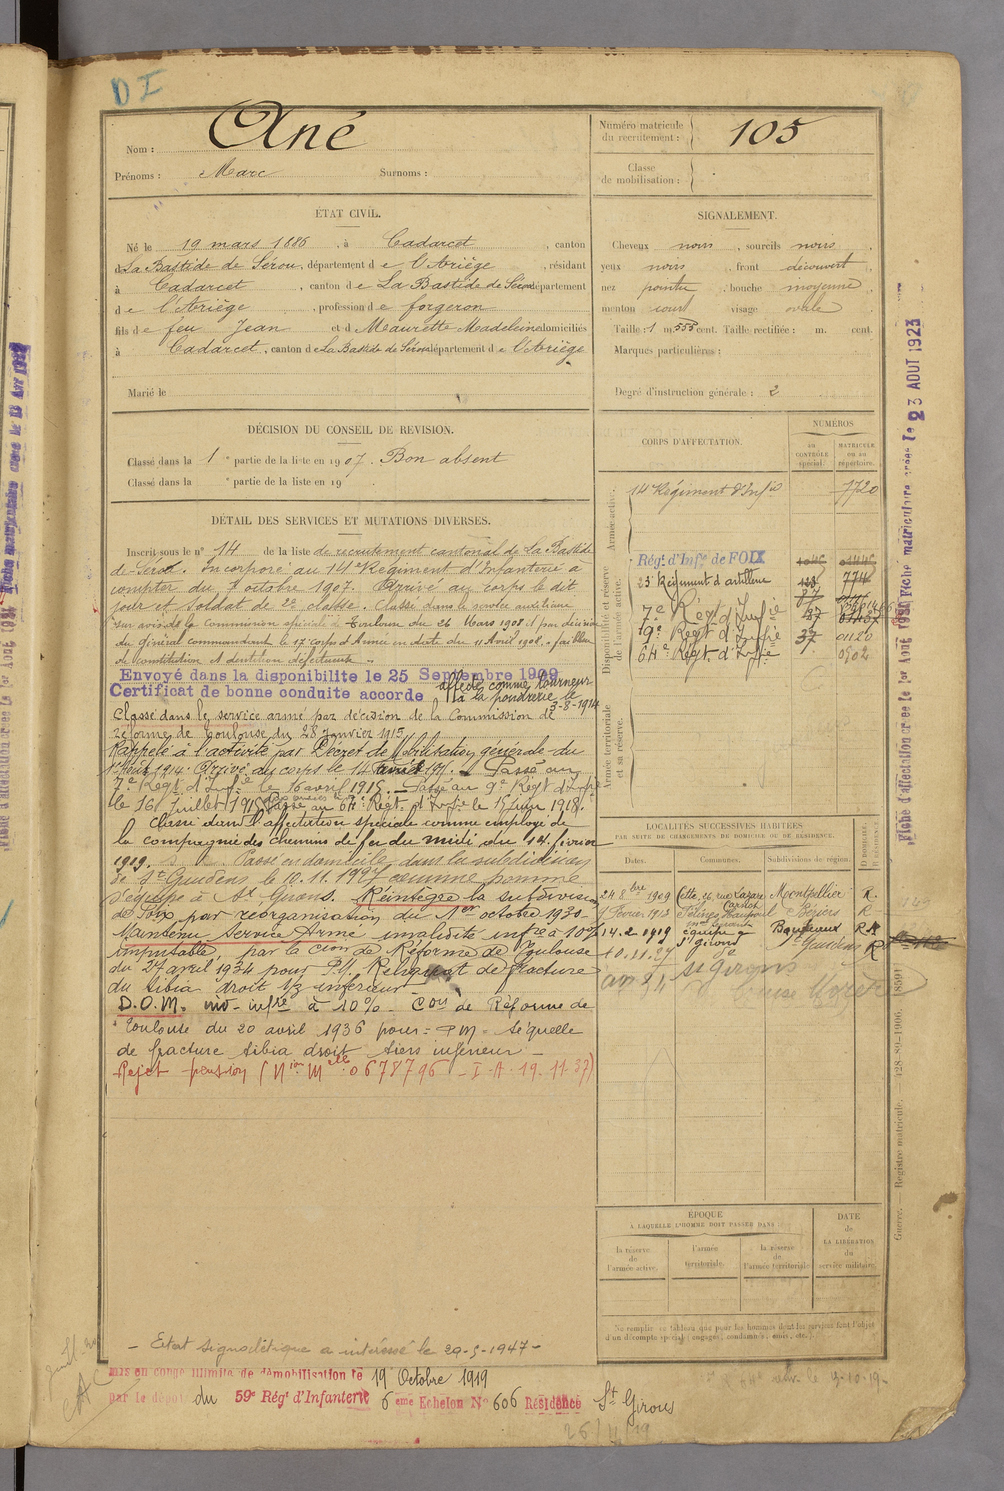 DI
Nom : Ané
Prénoms : Marc Surnoms :
Numéro matricule du recrutement : 105
Classe de mobilisation :
ÉTAT CIVIL.
Né le 19 mars 1886, à Cadarcet, canton
d La Bastide de Sérou, département d e l'Ariège, résidant
à Cadarcet, canton d e La Bastide de Sérou département
d e l'Ariège, profession d e forgeron
fils d e feu Jean et d Maurette Madeleine domiciliés
à Cadarcet, canton d e La Bastide de Sérou département d e l'Ariège
Marié le
SIGNALEMENT.
Cheveux noirs, sourcils noirs,
yeux noirs, front découvert,
nez pointu, bouche moyenne,
menton court visage ovale
Taille : 1 m. 555 cent. Taille rectifiée : m. cent.
Marques particulières :
Degré d'instruction générale : 2
DÉCISION DU CONSEIL DE REVISION.
Classé dans la 1e partie de la liste en 1907. Bon absent
Classé dans la e partie de la liste en 19
DÉTAIL DES SERVICES ET MUTATIONS DIVERSES.
Inscrit sous le n° 14 de la liste de recrutement cantonal de La Bastide
de Sérou. Incorporé au 14e Régiment d'Infanterie à
compter du 7 octobre 1907. Arrivé au corps le dit
jour et soldat de 2e classe. Classé dans le service auxiliaire
sur avis de la Commission spéciale de Toulouse du 26 Mars 1908 et par décision
du Général commandant le 17e corps d'Armée en date du 11 Avril 1908. faiblesse
de constitution et dentition défectueuse.
Envoyé dans la disponibilité le 25 Septembre 1909
Certificat de bonne conduite accordé
affecté comme tourneur
à la poudrerie le
3-8-1914
Classé dans le service armé par décision de la Commission de
réforme de Toulouse du 28 Janvier 1915
Rappelé à l'activité par Décret de Mobilisation générale du
1er Août 1914. Arrivé au corps le 14 avril 1915. Passé au
7e Régt d'Infie le 16 avril 1915. Passé au 9e Régt d'Infie
le 16 Juillet 1915 Passé au 64e Régt d'Infie le 15 Juin 1918.
Classé dans l'affectation spéciale comme employé de
la compagnie des chemins de fer du midi du 14 février
1919. Passé en domicile dans la subdivision
de St Gaudens le 10.11.1927 comme homme
d'équipe à St Girons. Réintègre la subdivision
de Foix par réorganisation du 1er octobre 1930.
Maintenu Service Armé invalidité infre à 10%
imputable, par la Cion de Réforme de Toulouse
du 27 avril 1934 pour P.M. Reliquat de fracture
du tibia droit 1/3 inférieur
D.O.M. inv. infre à 10% Con de Réforme de
Toulouse du 20 avril 1936 pour : PM - Séquelle
de fracture tibia droit tiers inférieur
Rejet pension (Nion Melle 0678796 - I.A. 19.11.37)
CORPS D'AFFECTATION.
NUMÉROS
AU CONTRÔLE spécial.
MATRICULE ou au répertoire.
Armée active.
14 Régiment d'Infie 7720
Disponibilité et réserve de l'armée active.
Régt d'Infie de FOIX
23e Régiment d'artillerie
7e Régt d'Infie
9e Régt d'Infie 37 01120
64e Régt d'Infie 0902
Armée territoriale et sa réserve.
LOCALITÉS SUCCESSIVES HABITÉES
PAR SUITE DE CHANGEMENTS DE DOMICILE OU DE RÉSIDENCE.
Dates. Communes. Subdivisions de région. D. DOMICILE. R. RÉSIDENCE.
24 8bre 1909 Cette, 26, rue Lazare Carnot Montpellier R.
9 Février 1913 Félines Hautpoul Béziers R
14.2.1919 équipe Bordeaux RA
10.11.27 St Girons St Gaudens R
St Girons
ÉPOQUE
À LAQUELLE L'HOMME DOIT PASSER DANS
la réserve de l'armée active.
l'armée territoriale.
la réserve de l'armée territoriale
DATE de LA LIBÉRATION du service militaire.
Ne remplir ce tableau que pour les hommes dont les services font l'objet d'un décompte spécial (engagés, condamnés, omis, etc.).
Guerre. — Registre matricule. 428-89-1906.
Fiche d'affectation créée le 1er Août 1921 Fiche matriculaire créée le 23 AOUT 1923
– Etat signalétique à intéressé le 29-5-1947 –
mis en congé illimité de démobilisation le 19 Octobre 1919
par le dépôt du 59e Régt d'Infanterie 6ème Echelon N° 606 Résidence St Girons